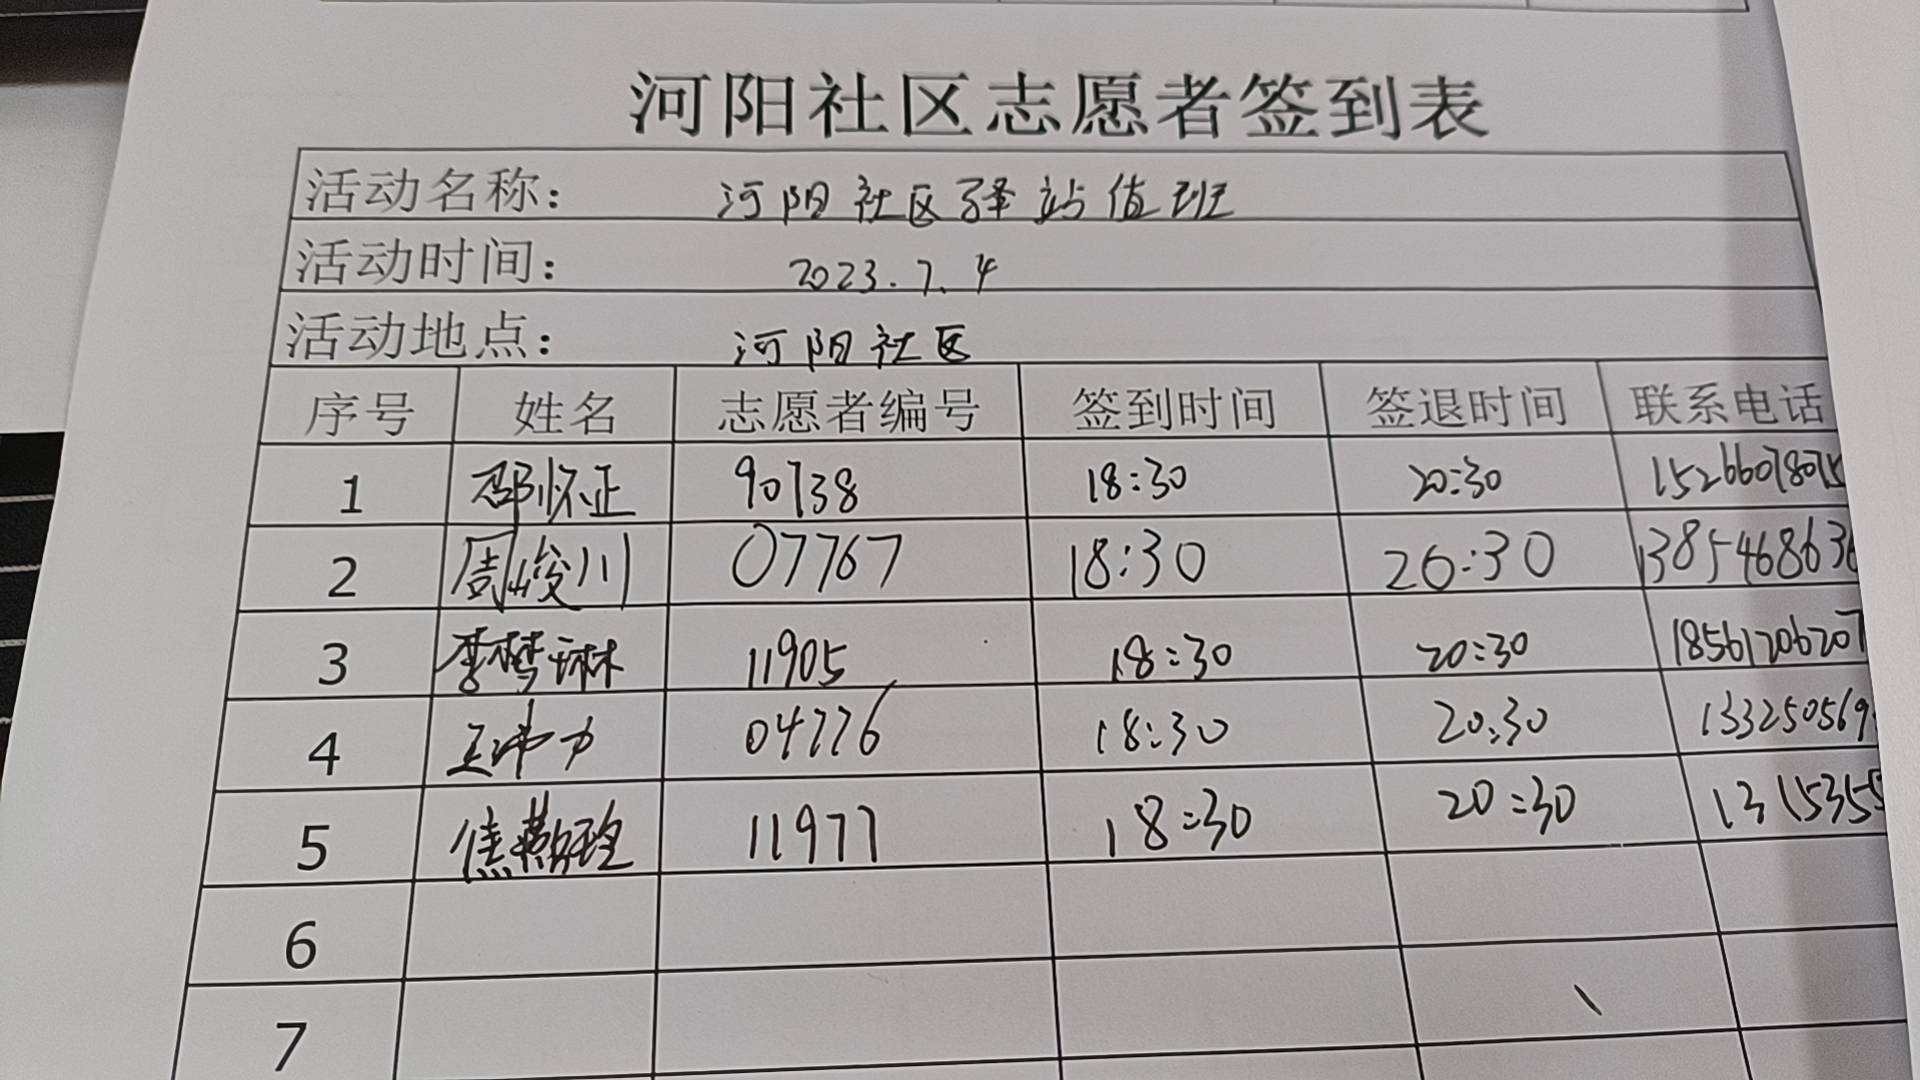 河阳社区志愿者签到表
活动名称: 河阳社区驿站值班
活动时间: 2023.7.4
活动地点: 河阳社区
序号 姓名 志愿者编号 签到时间 签退时间 联系电话
1 邵怀正 90738 18:30 20:30 15266078075
2 周峻川 07767 18:30 20:30 1385468636
3 李梦琳 11905 18:30 20:30 18561206207
4 王冲力 04776 18:30 20:30 133250569
5 焦 11977 18:30 20:30 1315355
6
7